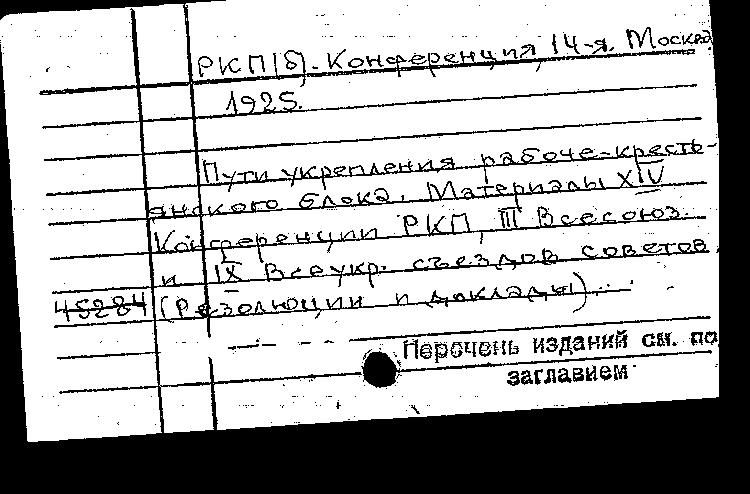 РКП(б)-Конференция, 14-я. Москва
1925.
Пути укрепления рабоче-кресть-
янского блока. Материалы XIV
Конференции РКП, III Всесоюз.
и IX Всеукр. съездов советов.
45284 (Резолюции и доклады).
Перечень изданий см. по
заглавием